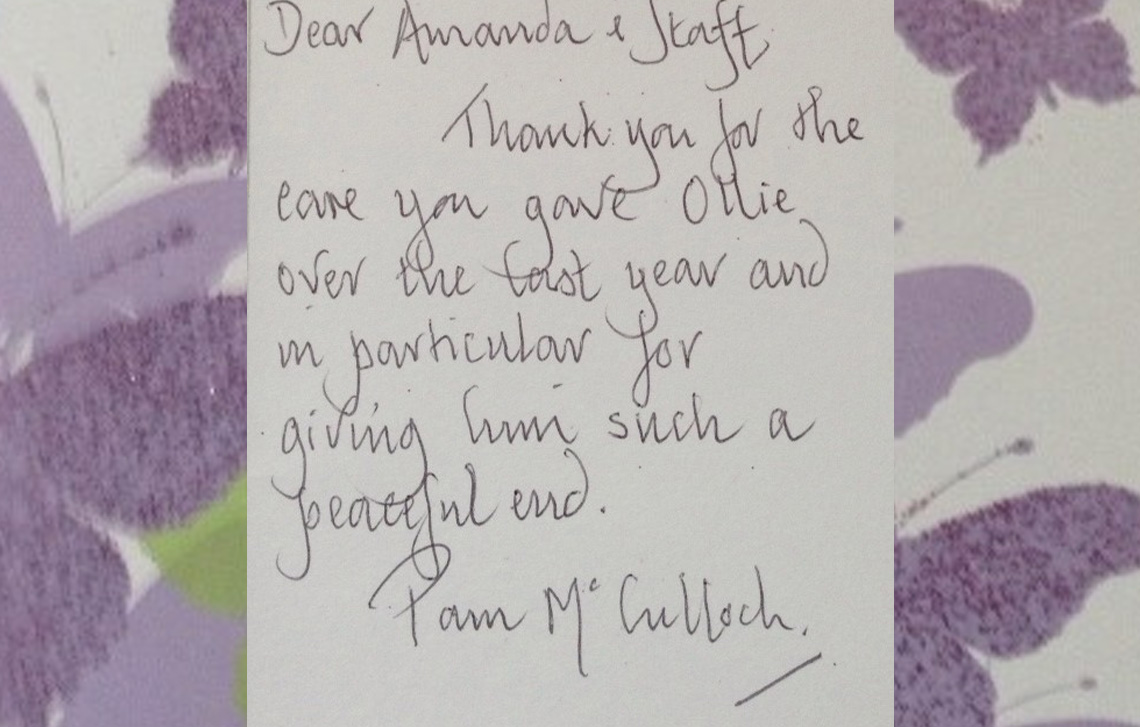 Dear Amanda & Staff,
Thank you for the
care you gave Ollie
over the last year and
in particular for
giving him such a
peaceful end.
Pam McCulloch.